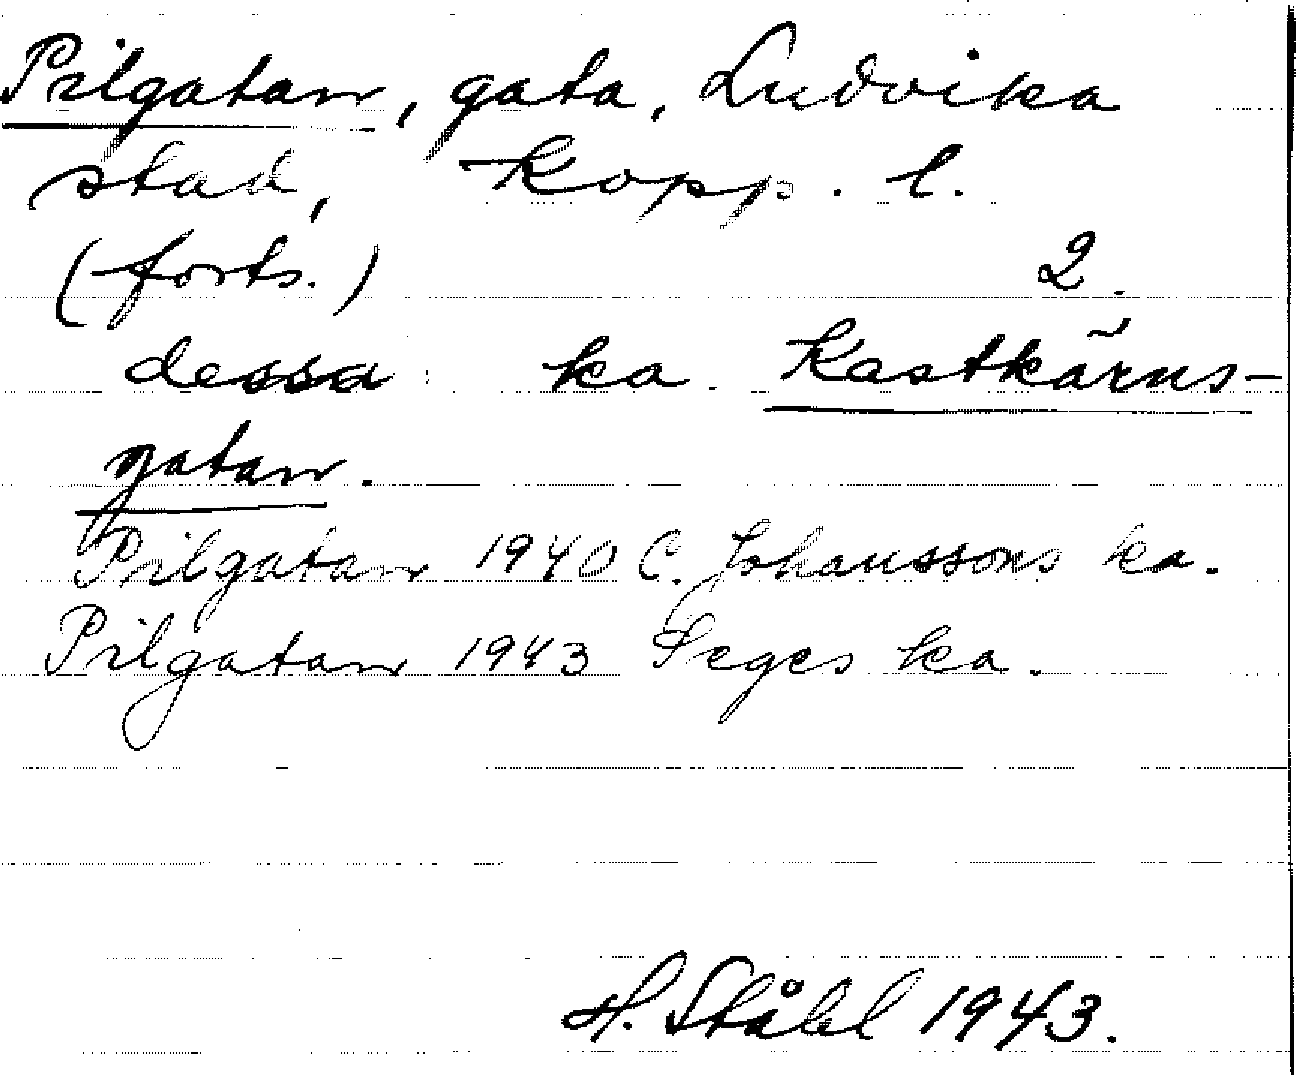 Pilgatan, gata, Ludvika
stad, Kopp. l.
(forts.) 2.
dessa ka. Kastkärns-
gatan.
Pilgatan 1940 C. Johanssons ka.
Pilgatan 1943 Seges ka.
H. Ståhl 1943.